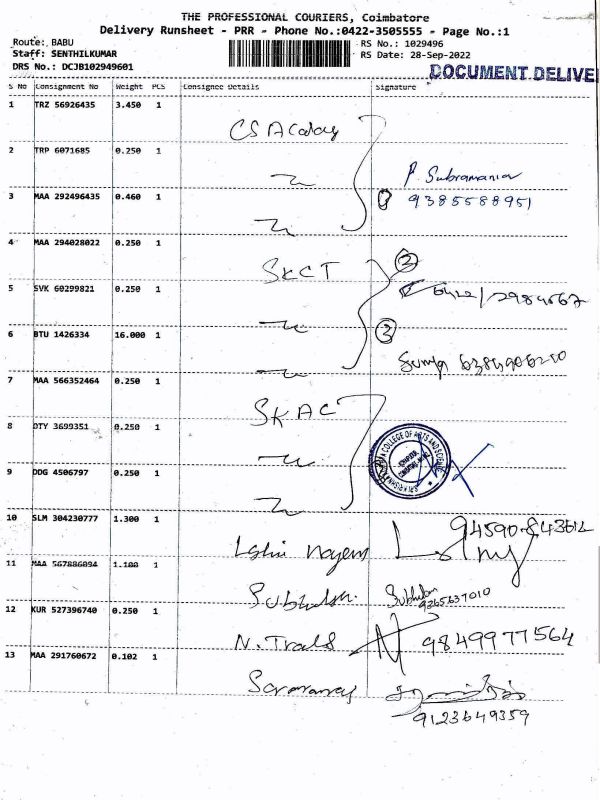 THE PROFESSIONAL COURIERS, Coimbatore
Delivery Runsheet - PRR - Phone No.:0422-3505555 - Page No.:1
Route: BABU
RS No.: 1029496
Staff: SENTHILKUMAR
RS Date: 28-Sep-2022
DRS No.: DCJB102949601
DOCUMENT DELIVE
S No Consignment No Weight PCS Consignee Details Signature
1 TRZ 56926435 3.450 1
2 TRP 6071685 0.250 1
P. Subramanian
3 MAA 292496435 0.460 1
9385588951
4 MAA 294028022 0.250 1
SKCT
2
5 SVK 60299821 0.250 1
6 BTU 1426334 16.000 1
3
7 MAA 566352464 0.250 1
SKAC
8 DTY 3699351 0.250 1
COLLEGE OF ARTS AND SCIENCE
9 DDG 4506797 0.250 1
10 SLM 304230777 1.300 1
11 MAA 567886094 1.180 1
9265637010
12 KUR 527396740 0.250 1
N. Trals
9849977564
13 MAA 291760672 0.102 1
9123649359